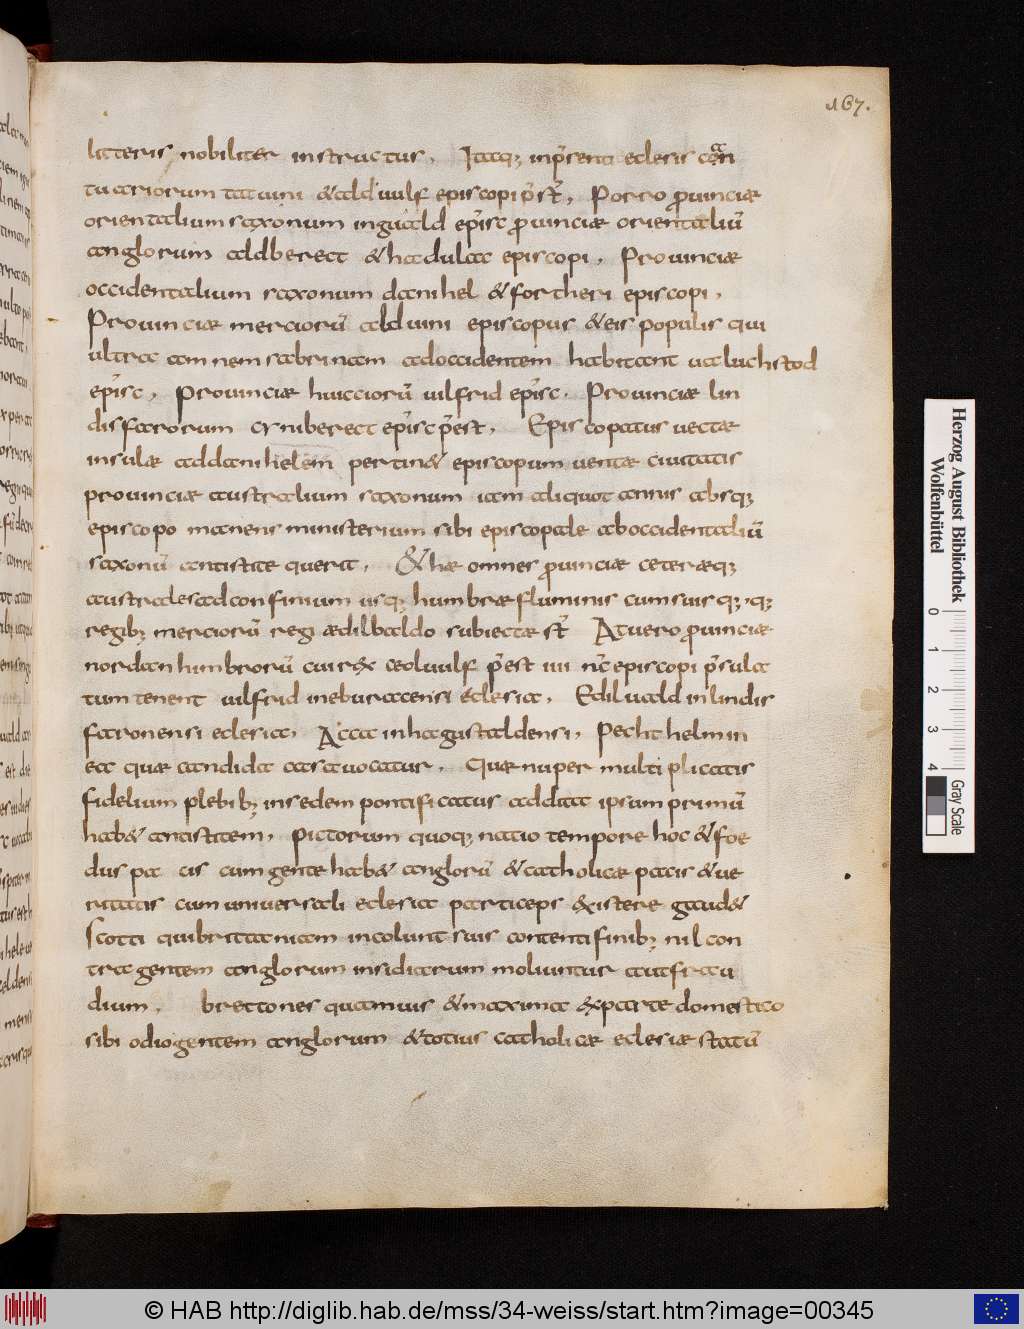 167.
litteris nobiliter instructus. Itaq; inp̄senti eclesis caan
tuariorum tatuini & alduulf episcopi p̄st̄, Porro puinciæ
orientalium saxonum inguald ep̄isc puinciæ orientaliū
anglorum aldberect & hadulac episcopi. Prouinciæ
occidentalium saxonum danihel & fortheri episcopi,
Prouinciæ merciorū alduuini episcopus & eis populis qui
ultra amnem sabrinam adoccidentem habitant ualuchstod
ep̄isc, Prouinciæ huicciorū uilfrid ep̄isc. Prouinciæ lin
disfarorum cyniberect ep̄isc p̄est, Episcopatus uectæ
insulæ addanihelem pertin& episcopum uentæ ciuitatis
prouinciæ australium saxonum iam aliquot annis absq;
episcopo manens ministerium sibi episcopale aboccidentaliū
saxonū antistite querit, & hæ omnes puinciæ ceteræq;
australes adconfinium usq; humbræ fluminis cumsuis q;q;
regib; merciorū regi ædilbaldo subiectæ st̄ Atuero puinciæ
nordanhimbrorū cui rex ceoluulf p̄est iiii nc̄ episcopi p̄sula
tum tenent uilfrid ineburacensi eclesia, Ediluald inlindis
faronensi eclesia, Acca inhagustaldensi, Pecthelm in
ea quæ candida casa uocatur. Quæ nuper multiplicatis
fidelium plebib; insedem pontificatus addita ipsum primū
hab& antistitem, Pictorum quoq; natio tempore hoc & foe
dus pa cis cum gente hab& anglorū & catholicæ pacis & ue
ritatis cum uniuersali eclesia particeps existere gaud&
Scotti qui brittaniam incolunt suis contenti finib; nil con
tra gentem anglorum insidiarum moliuntur aut frau
dium. brettones quamuis & maxima ex parte domestico
sibi odio gentem anglorum & totius catholicæ eclesiæ statū
Herzog August Bibliothek
Wolfenbüttel
0 1 2 3 4
Gray Scale
© HAB http://diglib.hab.de/mss/34-weiss/start.htm?image=00345